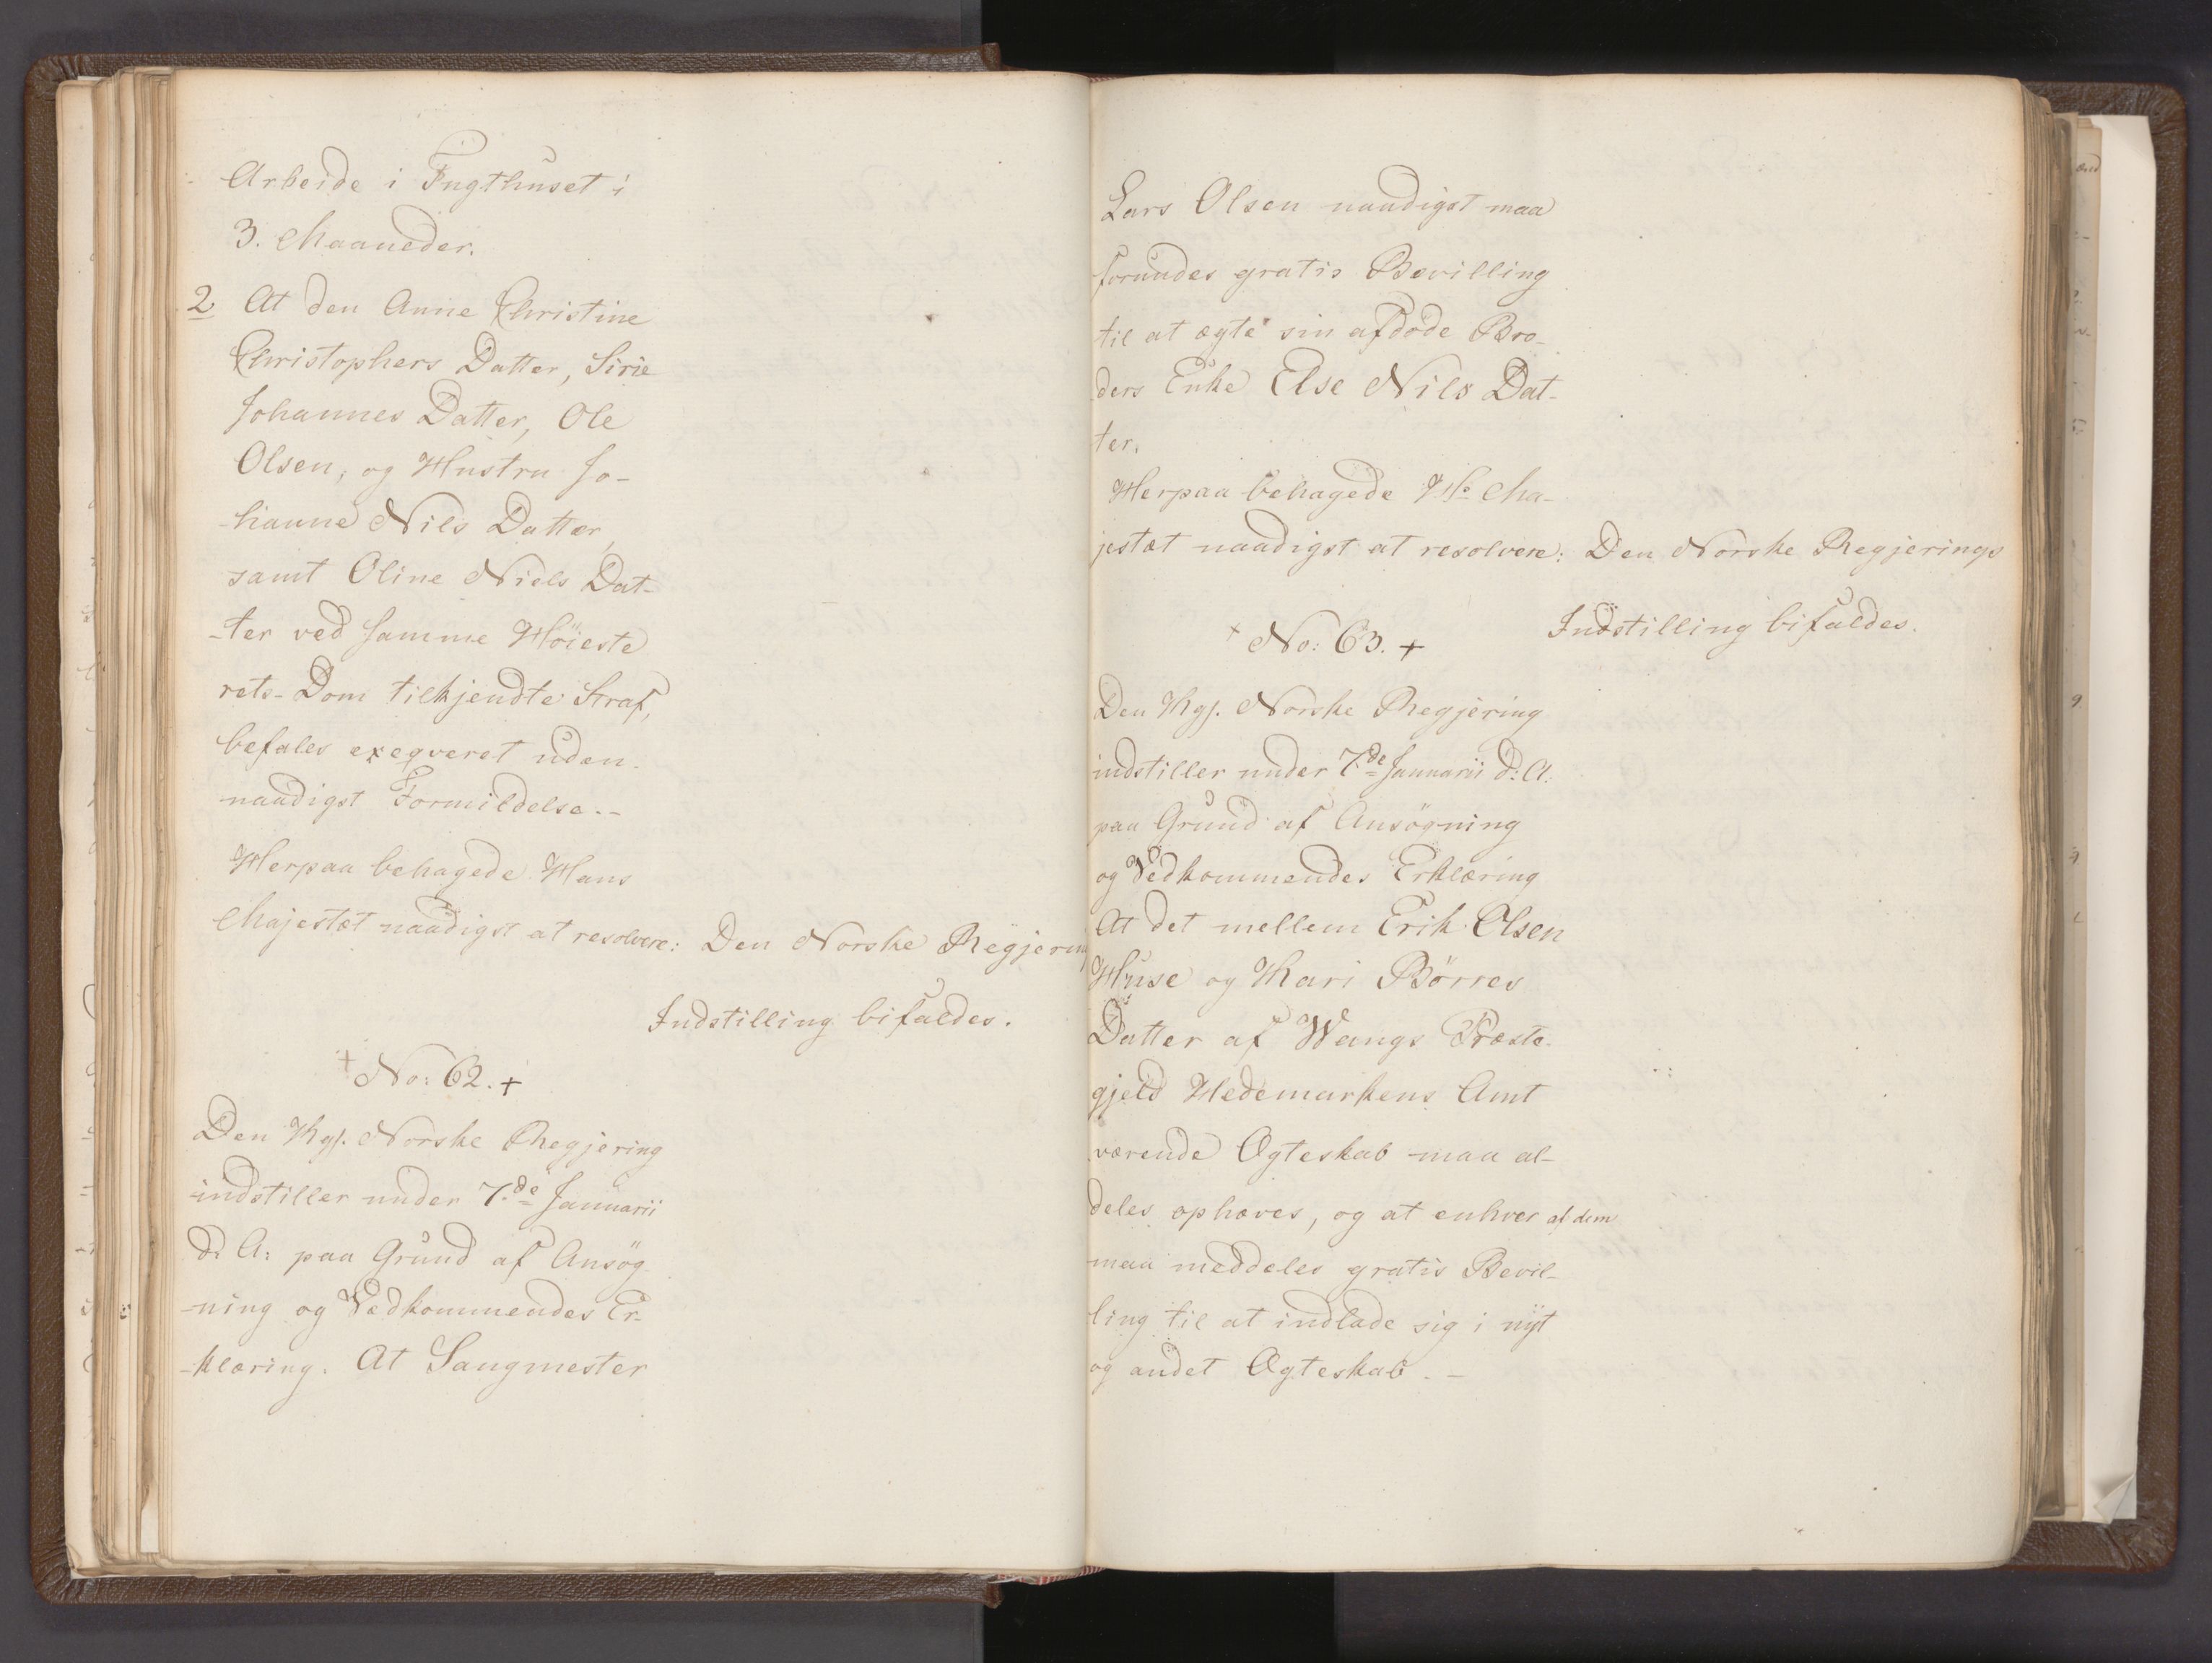 Arbeide i Tugthuset i
3. Maaneder.
2 At den Anne Christine
Christophers Datter, Sirie
Johannes Datter, Ole
Olsen, og Hustru Jo-
hanne Nils Datter,
samt Oline Niels Dat-
-ter ved samme Höieste
rets-Dom tilkjendte Straf,
befales exeqveret uden
naadigst Formildelse.-
Herpaa behagede Hans
Majestæt naadigst at resolvere: Den Norske Regjerings
Indstilling bifaldes.
+ No: 62. +
Den Kgl. Norske Regjering
indstiller under 7.de Januarii
d: A: paa Grund af Ansög
-ning og Vedkommendes Er-
-klæring. At Sangmester
Lars Olsen naadigst maa
forundes gratis Bevilling
til at ægte sin afdöde Bro-
ders Enke Else Nils Dat-
ter.
Herpaa behagede Hs Ma-
jestæt naadigst at resolvere: Den Norske Regjerings
Indstilling bifaldes.
+ No: 63. +
Den Kgl. Norske Regjering
indstiller under 7.de Januarii d: A.
paa Grund af Ansögning
og Vedkommendes Erklæring
At det mellem Erik Olsen
Huse og Kari Börres
Datter af Wangs Præste-
gjeld Hedemarkens Amt
værende Ægteskab maa al-
deles ophæves, og at enhver af dem
maa meddeles gratis Bevil-
ling til at indlade sig i nÿt
og andet Ægteskab. -